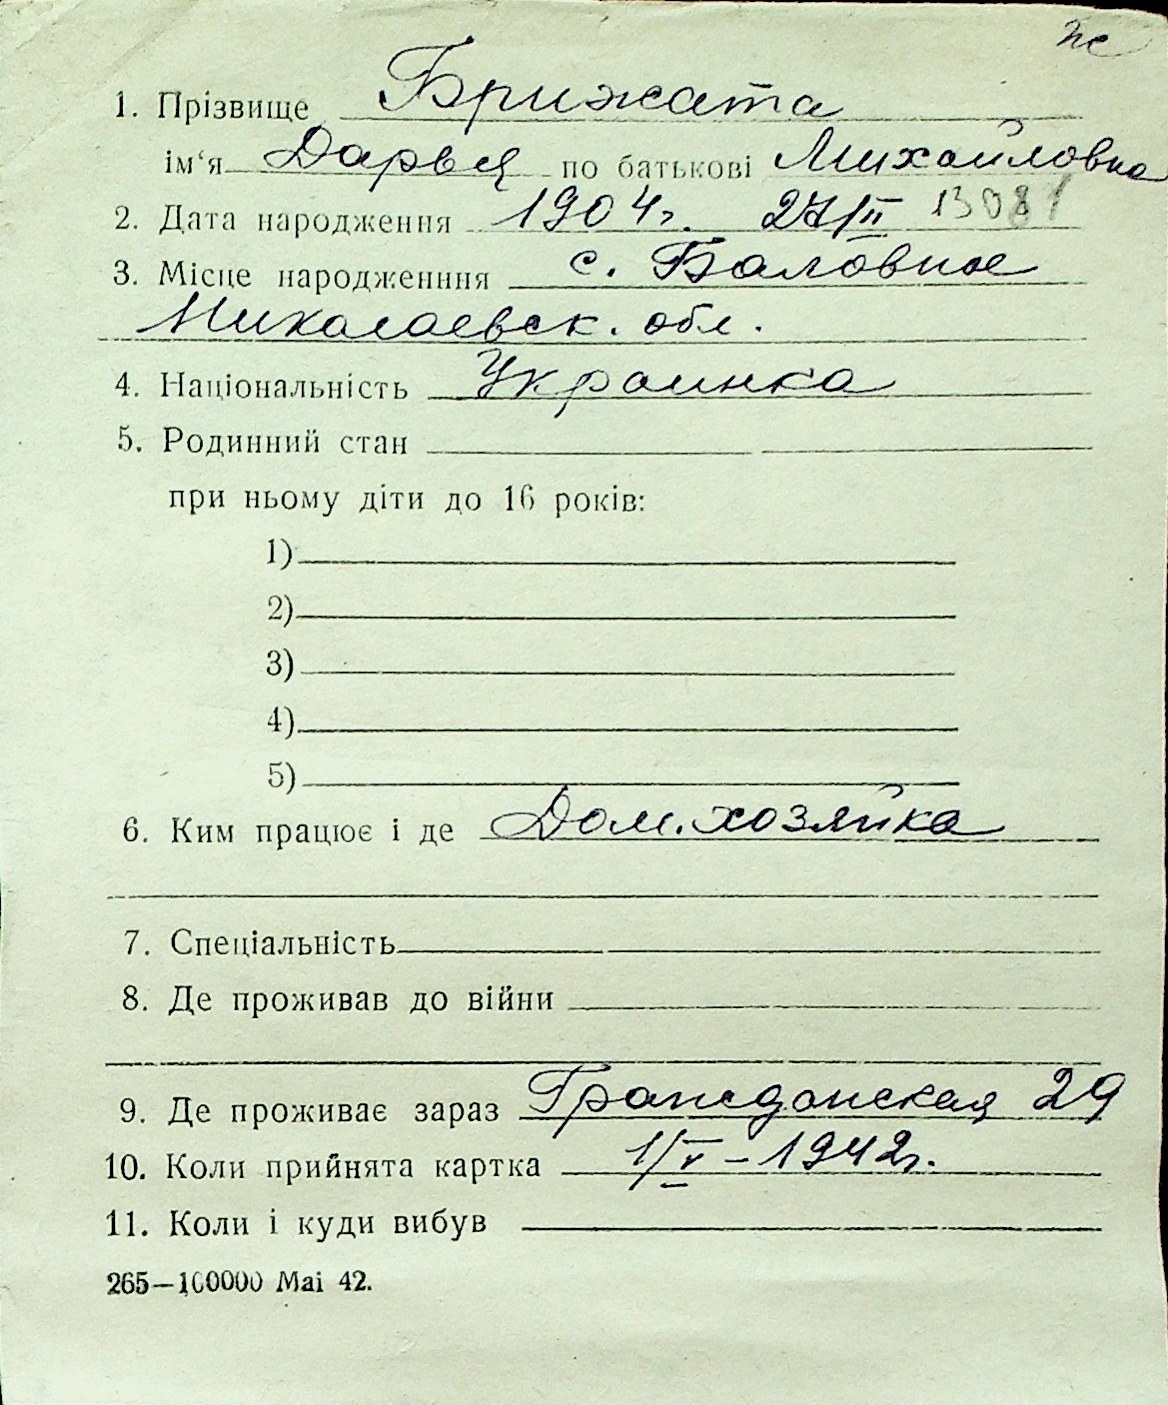 же
1. Прізвище Брижата
ім‘я Дарья по батькові Михайловна
2. Дата народження 1904г. 27/II 13081
3. Місце народженння с. Баловное
Николаевск. обл.
4. Національність Украинка
5. Родинний стан
при ньому діти до 16 років:
1)
2)
3)
4)
5)
6. Ким працює і де Дом. хозяйка
7. Спеціальність
8. Де проживав до війни
9. Де проживає зараз Гражданская 29
10. Коли прийнята картка 1/V – 1942г.
11. Коли і куди вибув
265—100000 Mai 42.